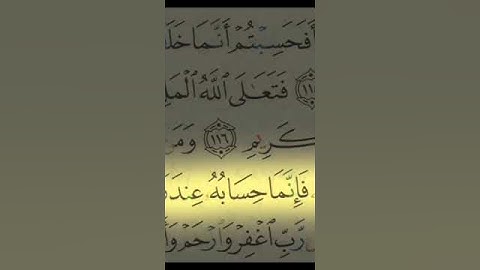 أَفَحَسِبْتُمْ أَنَّمَا خَلَ
١١ فَتَعَٰلَى ٱللَّهُ ٱلْمَلِ
كَرِيمِ ١١٦ وَمَن
فَإِنَّمَا حِسَابُهُۥ عِندَ
رَّبِّ ٱغْفِرْ وَٱرْحَمْ وَأَ